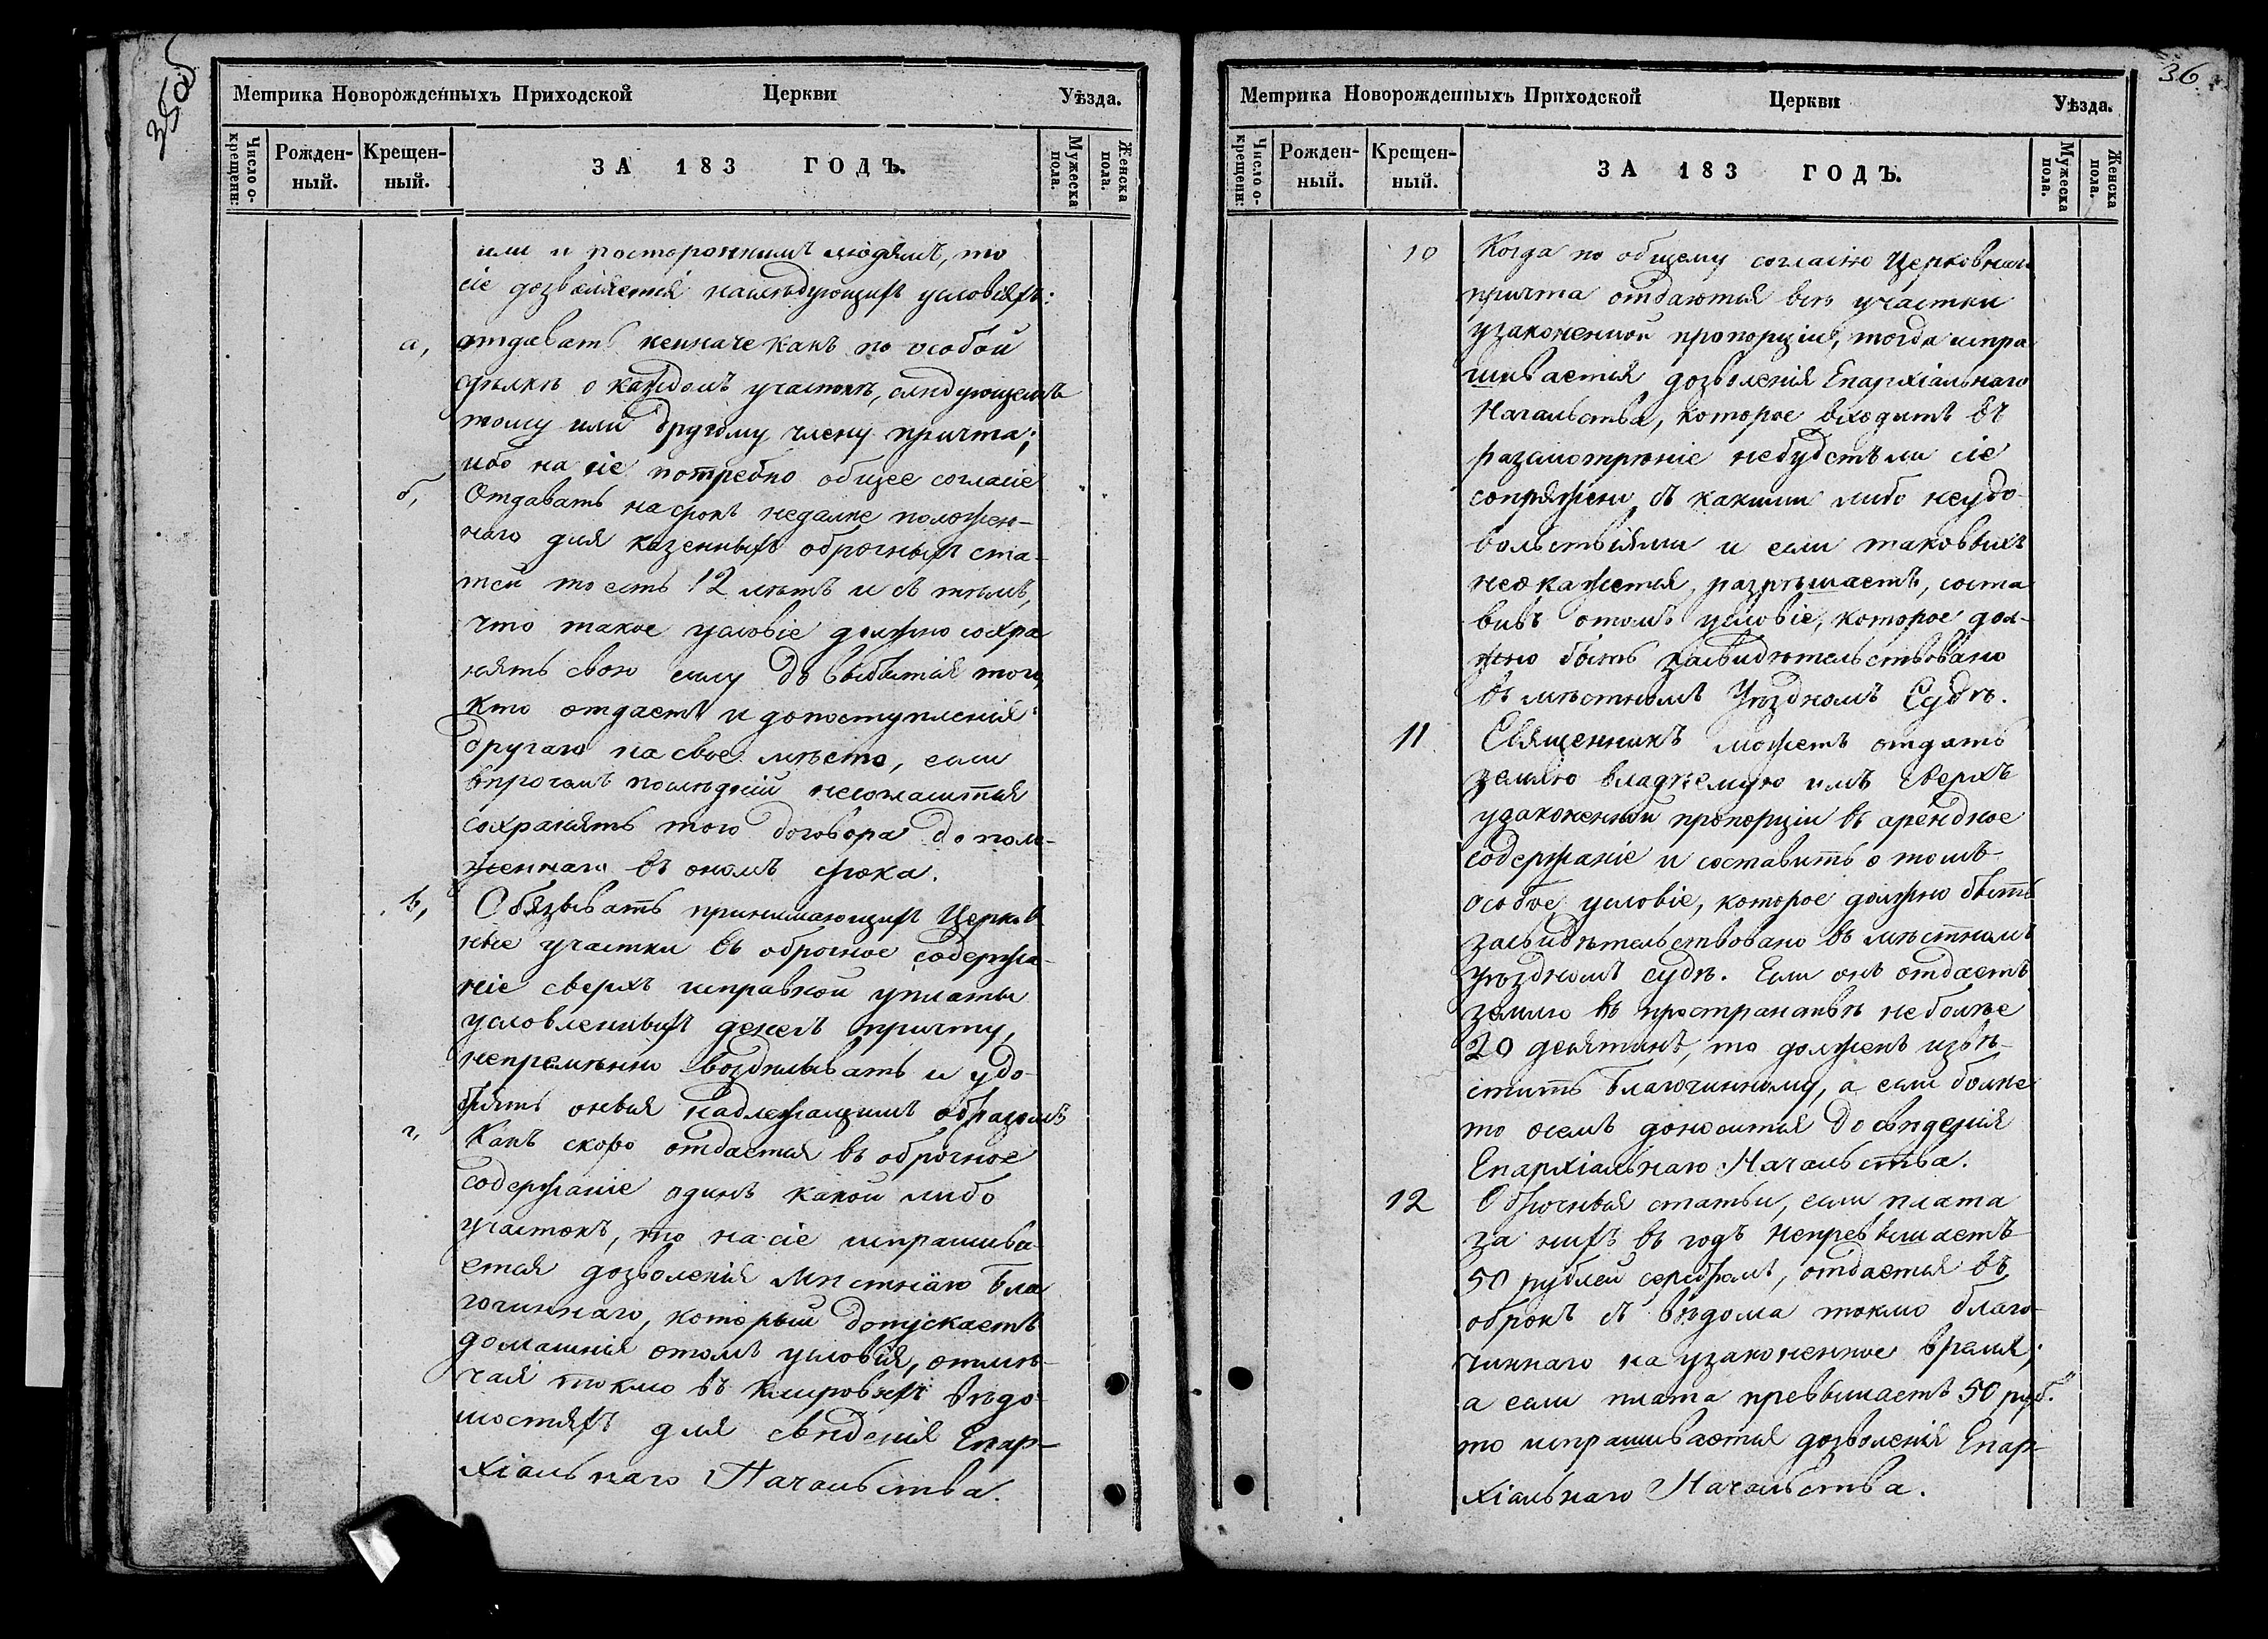 35об
Метрика Новорожденныхъ Приходской Церкви Уѣзда.
Число о-
крещени:
Рожден-
ный.
Крещен-
ный.
ЗА 183 ГОДЪ.
Мужеска
пола.
Женска
пола.
или и постороннимъ людямъ, то
сіе дозволяется наслѣдующихъ условіяхъ:
а, отдавать неиначе какъ по особой
сдѣлкѣ о каждомъ участкѣ, слѣдующемъ
тому или другому члену причта;
ибо на сіе потребно общее согласіе
б, Отдавать на срокъ недалѣе положен-
наго для казенныхъ оброчныхъ ста-
тей то есть 12 лѣтъ и съ тѣмъ,
что такое условіе должно сохра
нять свою силу до выбытія того,
кто отдаетъ и допоступленія
другаго на свое мѣсто, если
впрочемъ послѣдній несогласится
сохранять того договора до поло-
женнаго въ ономъ срока.
в, Обязывать принимающихъ Церков
ные участки въ оброчное содержа-
ніе сверхъ исправной уплаты
условленныхъ денегъ причту,
непремѣнно воздѣлывать и удо-
брять оныя надлежащимъ образомъ
г, Какъ скоро отдается въ оброчное
содержаніе одинъ какой либо
участокъ, то на сіе испрашива
ется дозволенія Мѣстнаго Бла
гочиннаго, который допускаетъ
домашнія отомъ условія, отмѣ-
чая токмо въ клировыхъ вѣдо-
мостяхъ для свѣденія Епар-
хіальнаго Начальства.
36.
Метрика Новорожденныхъ Приходской Церкви Уѣзда.
Число о-
крещени:
Рожден-
ный.
Крещен-
ный.
ЗА 183 ГОДЪ.
Мужеска
пола.
Женска
пола.
10 Когда по общему согласію Церковнаго
причта отдаются всѣ участки
узаконенной пропорціи, тогда испра
шивается дозволенія Епархіальнаго
Начальства, которое входитъ въ
разсмотрѣніе небудетъли сіе
сопряжено съ какими либо неудо-
вольствіями и если таковыхъ
неокажется, разрѣшаетъ, соста
вивъ отомъ условіе, которое дол-
жно быть засвидѣтельствовано
въ мѣстномъ Уѣздномъ Судѣ.
11 Священникъ можетъ отдать
землю владѣемую имъ сверхъ
узаконенной пропорціи въ арендное
содержаніе и составить о томъ
особое условіе, которое должно быть
засвидѣтельствовано въ мѣстномъ
уѣздномъ судѣ. Если онъ отдаетъ
землю въ пространствѣ неболѣе
20 десятинъ, то долженъ извѣ-
стить Благочинному, а если болѣе
то осемъ доносится до свѣдѣнія
Епархіальнаго Начальства.
12 Оброчныя статьи, если плата
за нихъ въ годъ непревышаетъ
50 рублей серебромъ, отдается въ
оброкъ съ вѣдома токмо благо-
чиннаго на узаконенное время;
а если плата превышаетъ 50 руб.
то испрашивается дозволенія Епар-
хіальнаго Начальства.